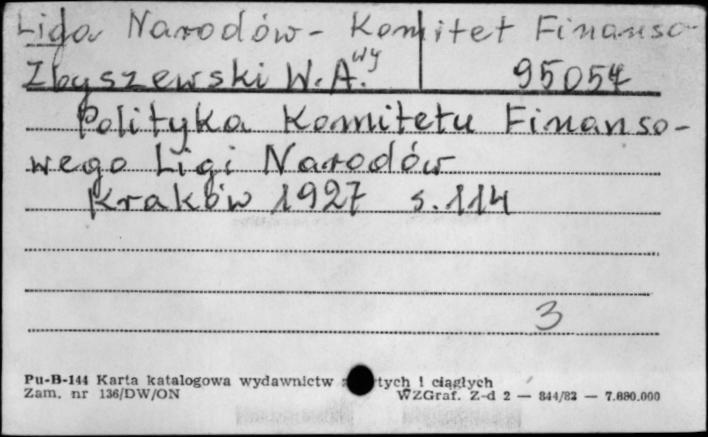 Liga Narodów - Komitet Finanso-
wy
Zbyszewski W. A. 95054
Polityka Komitetu Finanso-
wego Ligi Narodów
Kraków 1927 s. 114
3
Pu-B-144 Karta katalogowa wydawnictw tych i ciągłych
Zam. nr 136/DW/ON WZGraf. Z-d 2 — 844/82 — 7.880.000